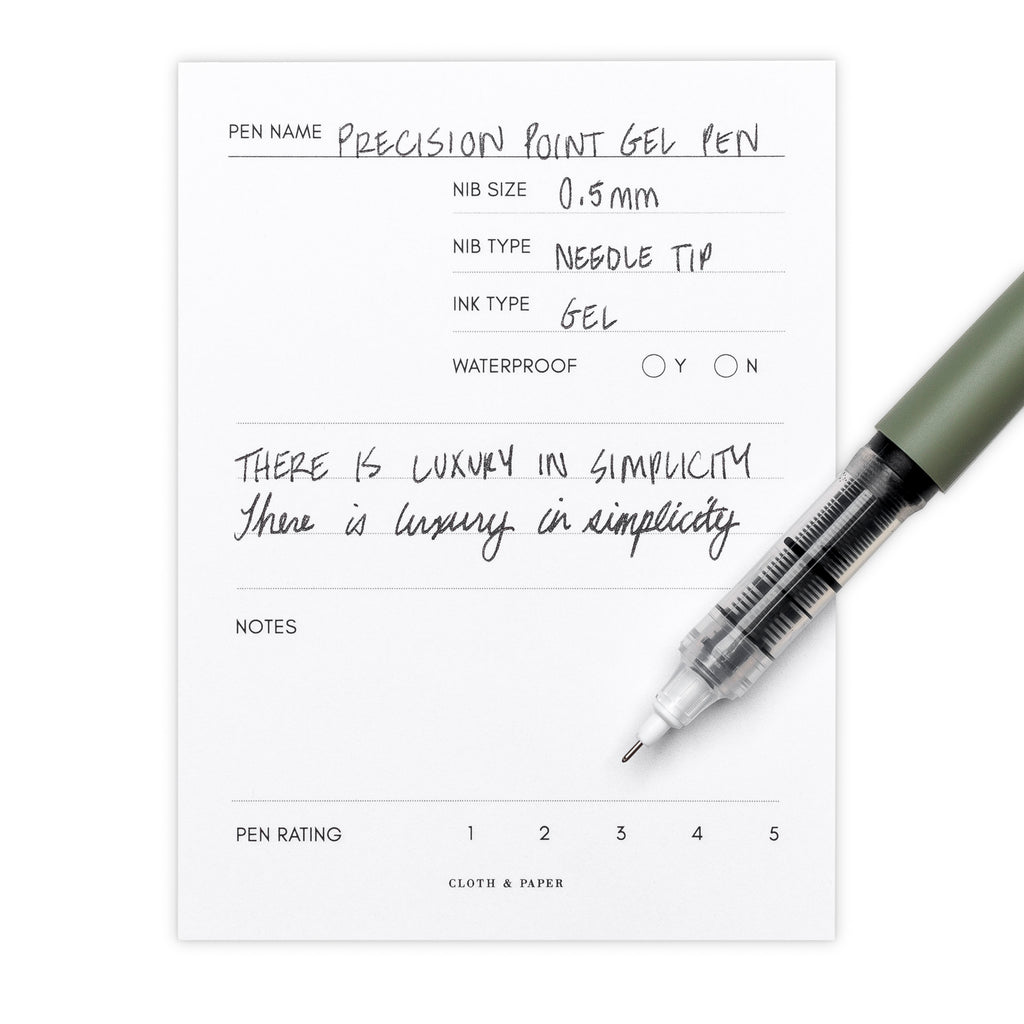 PEN NAME PRECISION POINT GEL PEN
NIB SIZE 0.5mm
NIB TYPE NEEDLE TIP
INK TYPE GEL
WATERPROOF Y N
THERE IS LUXURY IN SIMPLICITY
There is luxury in simplicity
NOTES
PEN RATING 1 2 3 4 5
CLOTH & PAPER